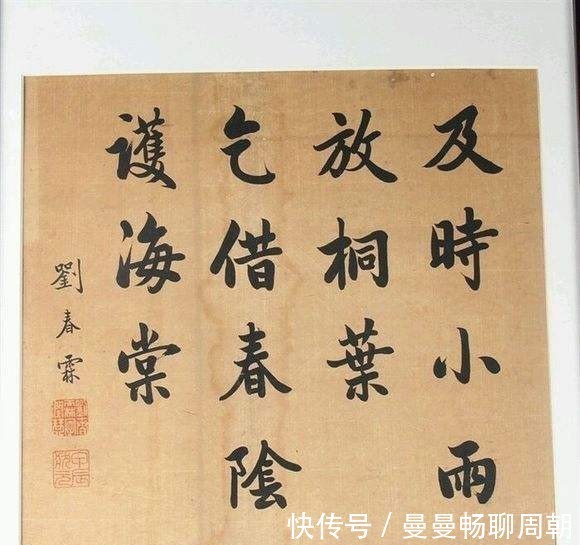 及時小雨
放桐葉
乞借春陰
護海棠
劉春霖
快传号 / 曼曼畅聊周朝